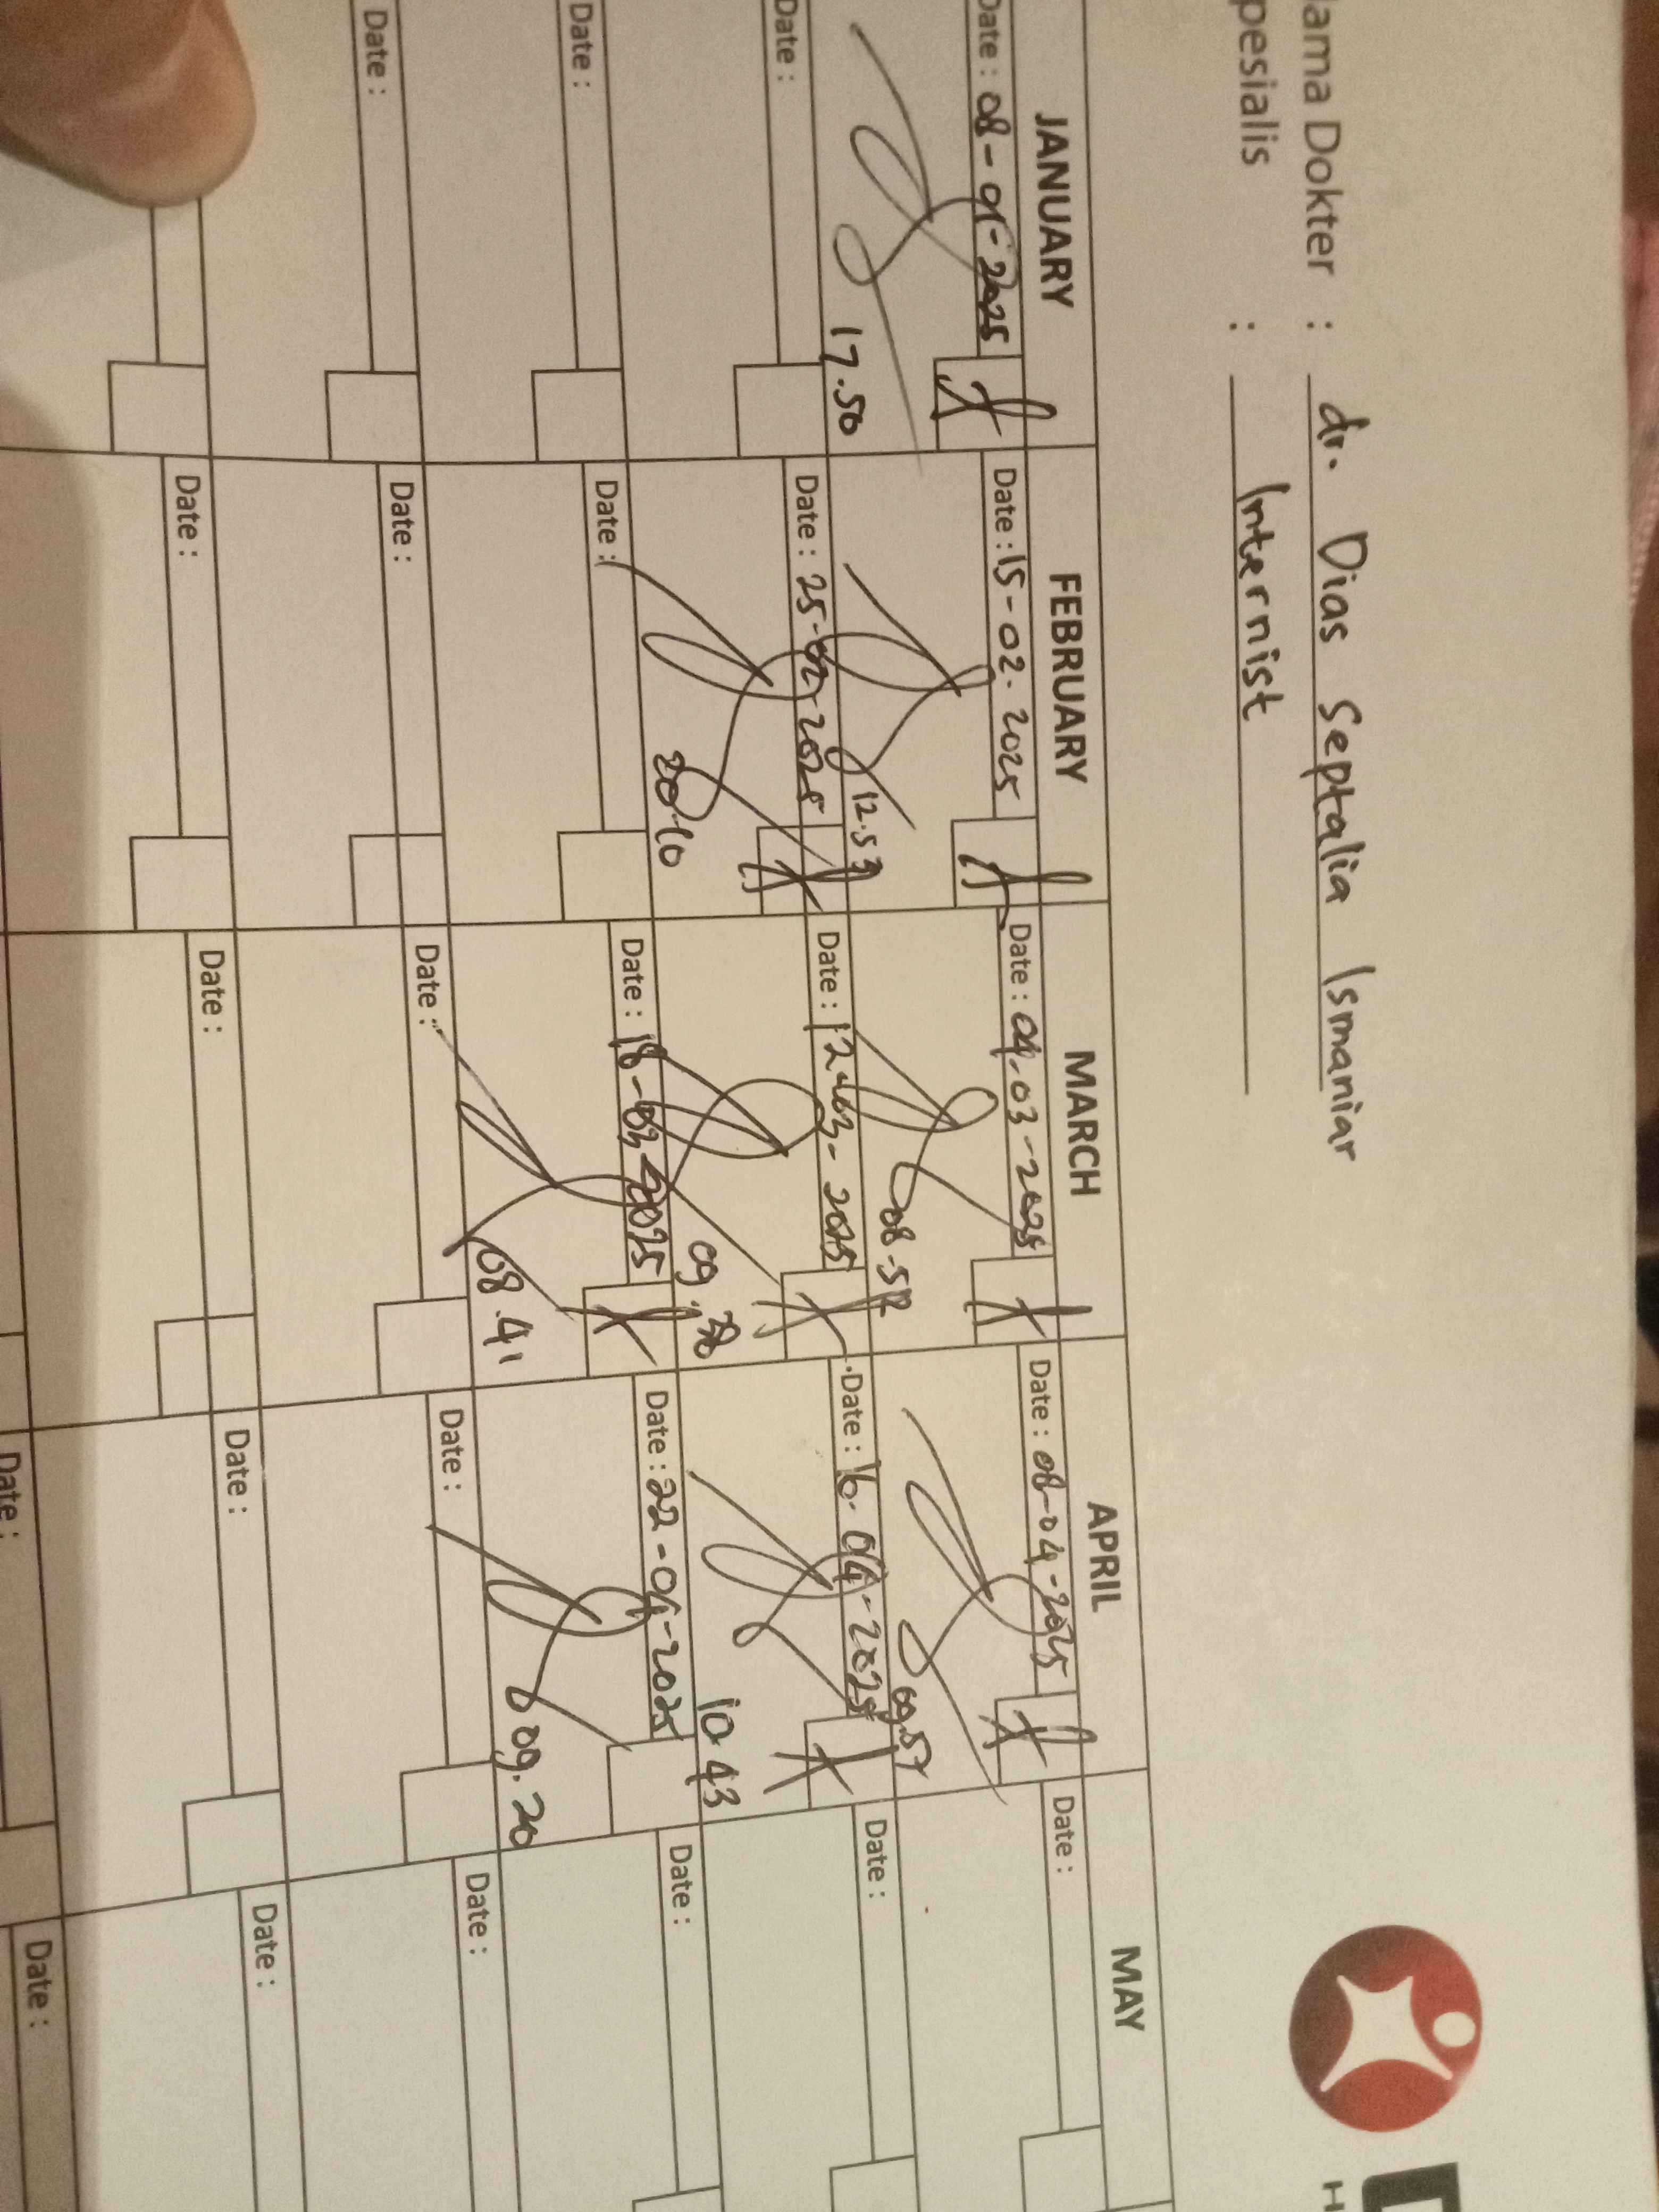 ama Dokter : dr. Dias Septalia Ismaniar
pesialis : Internist
H
JANUARY FEBRUARY MARCH APRIL MAY
Date : 08-01-2025 Date : 15-02-2025 Date : 04-03-2025 Date : 08-04-2025 Date :
17.50 12.53 08-52 09.57
Date : Date : 25-02-2025 Date : 12-03-2025 Date : 16-04-2025 Date :
20.10 09.38 10.43
Date : Date : Date : 18-03-2025 Date : 22-04-2025 Date :
08.41 09.20
Date : Date : Date : Date : Date :
Date : Date : Date : Date :
Date : Date :